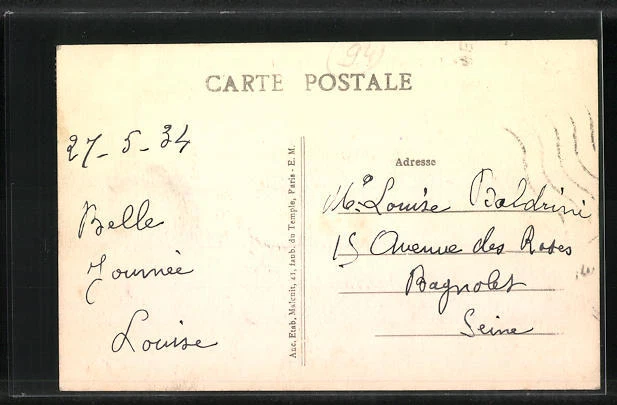 (94)
CARTE POSTALE
27-5-34
Belle
Journée
Louise
Anc. Etab. Malcuit, 41, faub. du Temple, Paris - E. M.
Adresse
Louise Baldrini
15 Avenue des Roses
Bagnolet
Seine